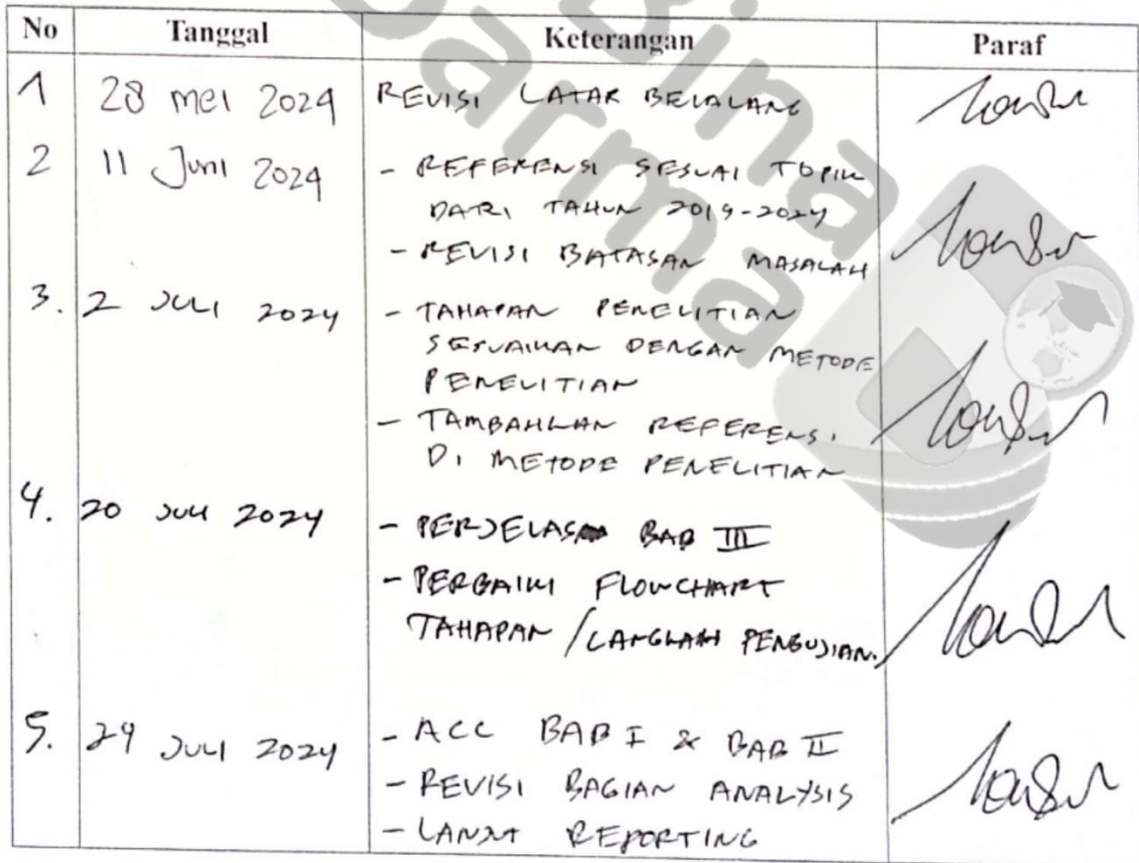 Bina
Darma
No Tanggal Keterangan Paraf
1 28 mei 2024 REVISI LATAR BELALANG
2 11 Juni 2024 - REFERENSI SESUAI TOPIK
DARI TAHUN 2019-2024
- REVISI BATASAN MASALAH
3. 2 JULI 2024 - TAHAPAN PENELITIAN
SESUAIKAN DENGAN METODE
PENELITIAN
- TAMBAHKAN REFERENSI
DI METODE PENELITIAN
4. 20 JULI 2024 - PERJELAS BAB III
- PERBAIKI FLOWCHART
TAHAPAN / LANGKAH PENGUJIAN.
5. 29 JULI 2024 - ACC BAB I & BAB II
- REVISI BAGIAN ANALYSIS
- LANJUT REPORTING